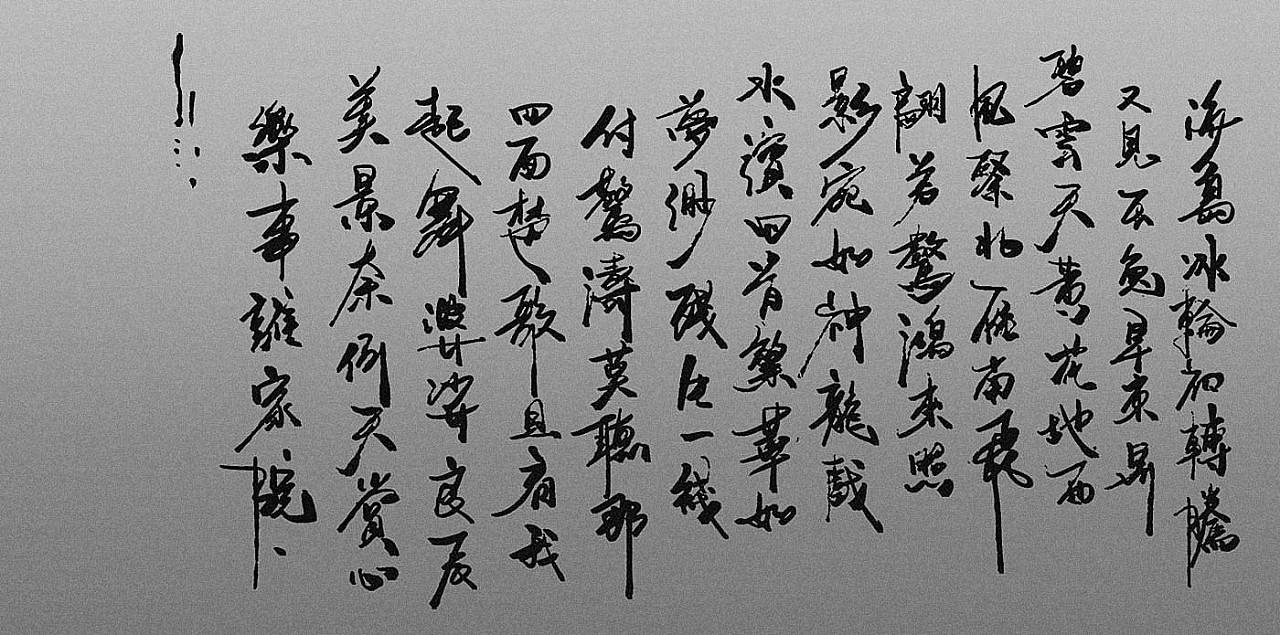 海島冰輪初轉騰
又見玉兔早東昇
碧雲天黄花地西
風緊北雁南飛
翩若驚鴻來照
影宛如神龍戲
水濱回首繁華如
夢渺殘生一綫
付驚濤莫聽那
四面楚歌且看我
起舞婆娑良辰
美景奈何天賞心
樂事誰家院、